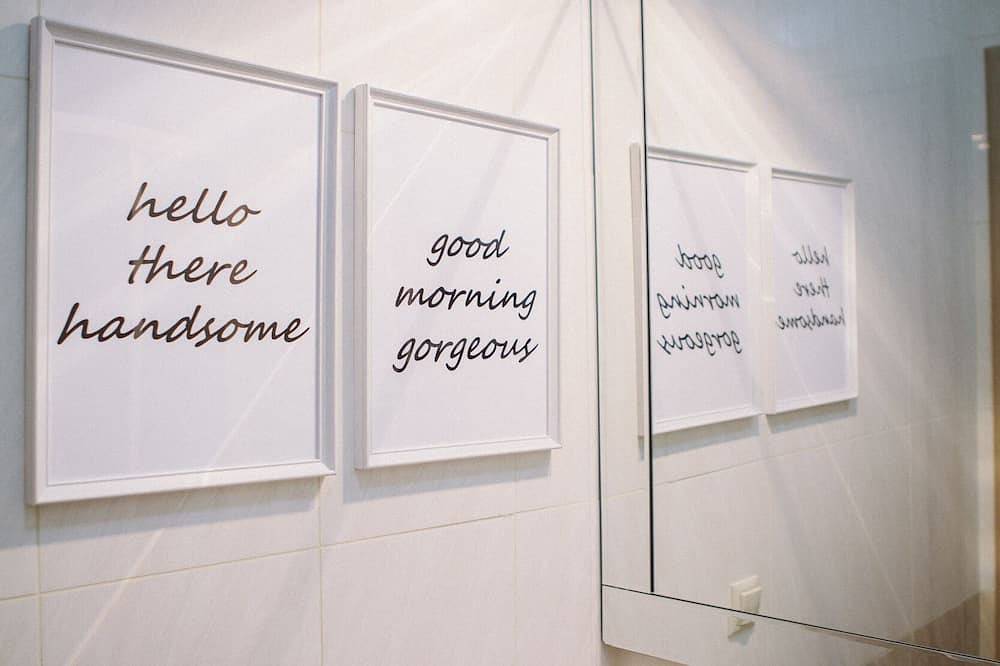 hello
there
handsome
good
morning
gorgeous
good
morning
gorgeous
hello
there
handsome